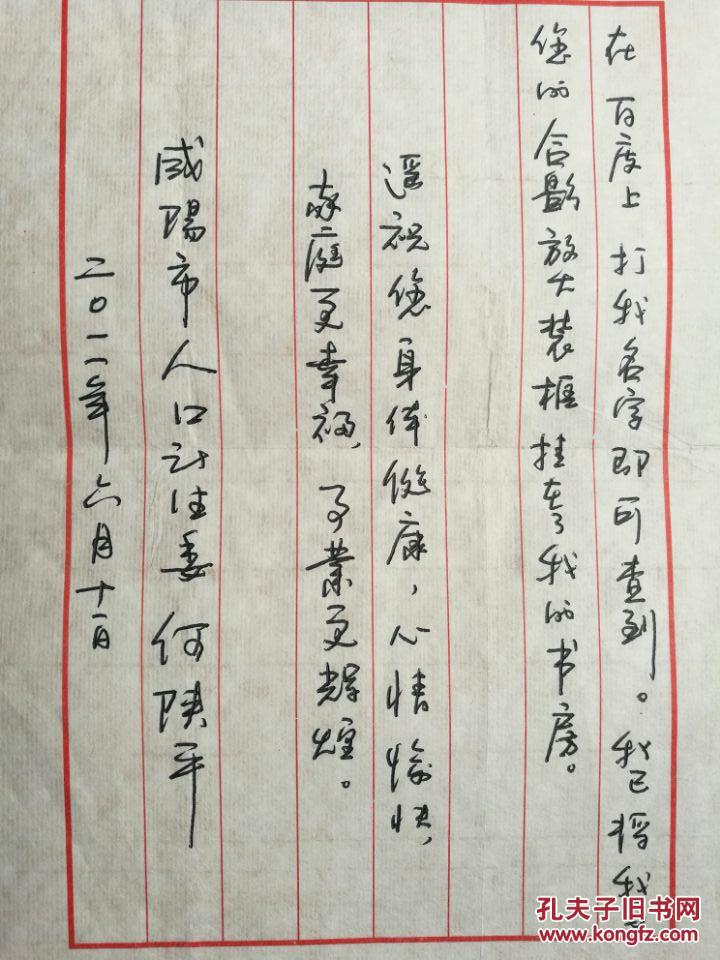 在百度上打我名字即可查到。我已将我与
您的合影放大装框挂在了我的书房。
遥祝您身体健康，心情愉快，
家庭更幸福，事业更辉煌。
咸陽市人口计生委 何陕平
二〇一一年六月十一日
孔夫子旧书网
www.kongfz.com